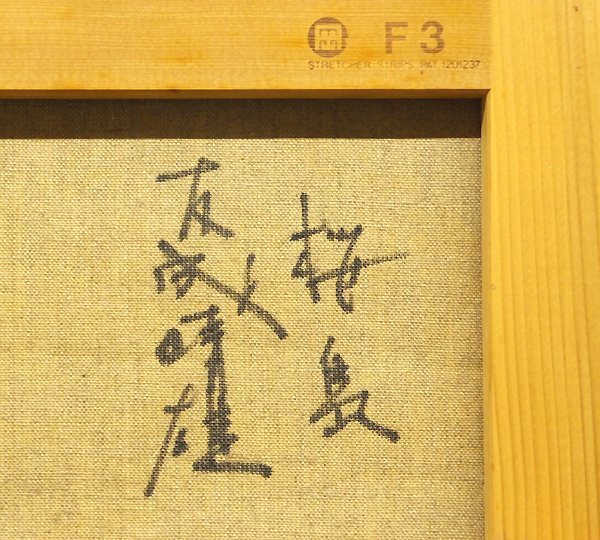 F3
STRETCHER STRIPS. PAT.1201237
桜島
友成晴雄